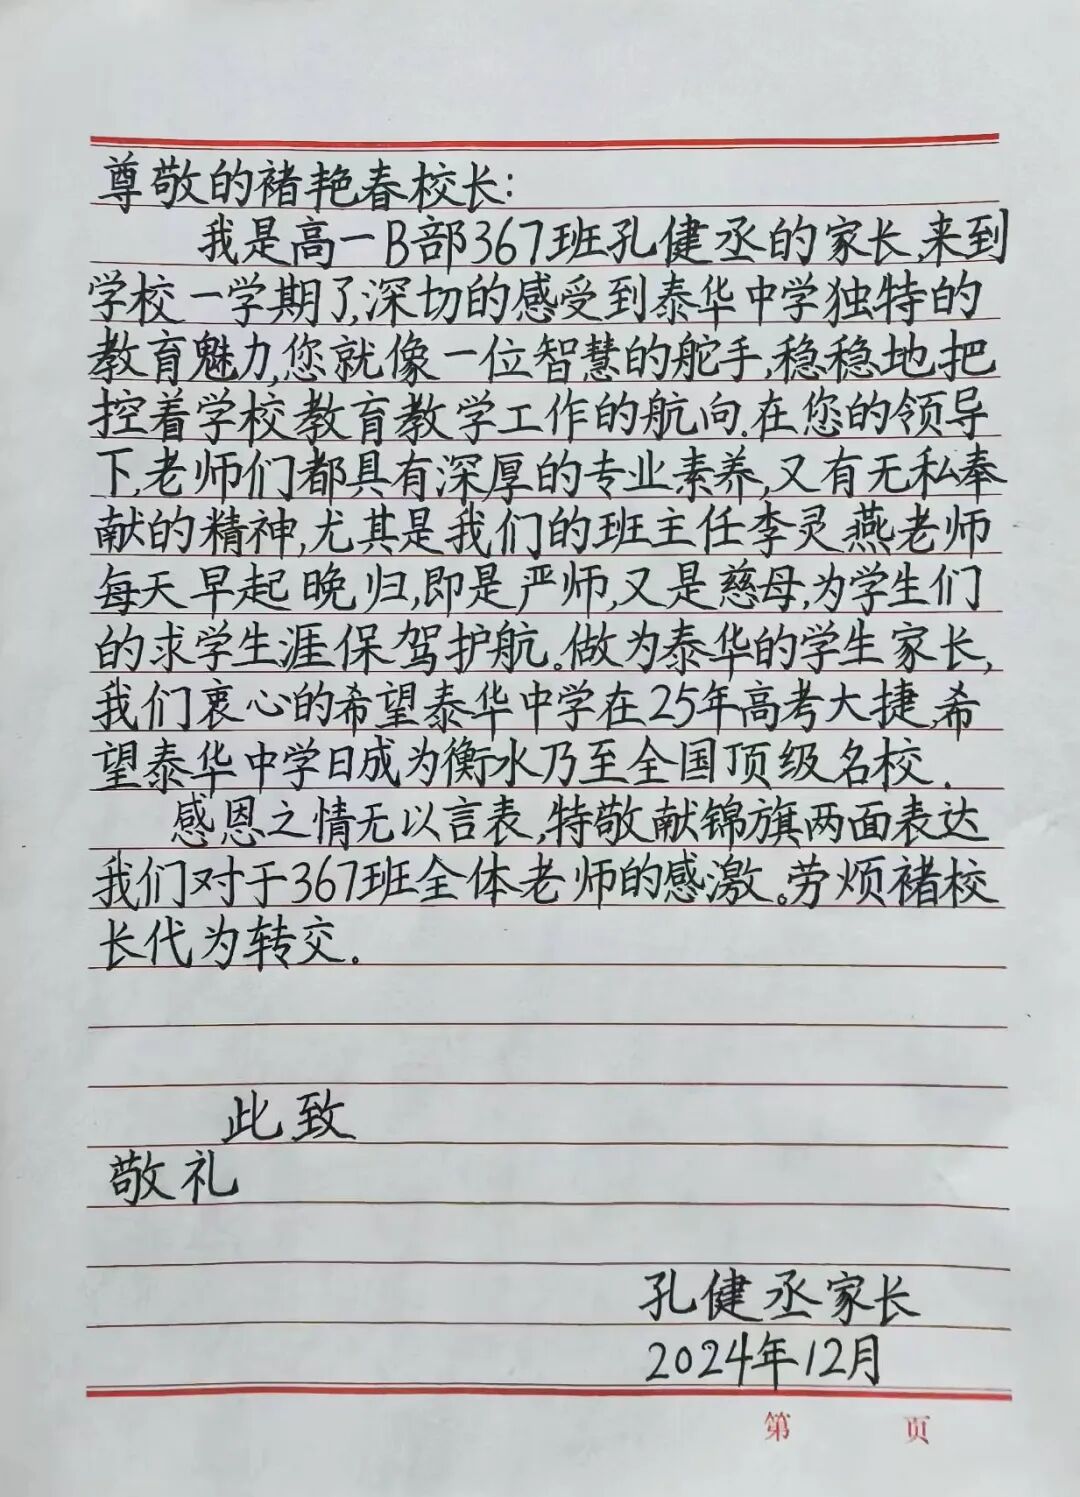 尊敬的褚艳春校长:
我是高一B部367班孔健丞的家长,来到
学校一学期了,深切的感受到泰华中学独特的
教育魅力,您就像一位智慧的舵手,稳稳地把
控着学校教育教学工作的航向.在您的领导
下,老师们都具有深厚的专业素养,又有无私奉
献的精神,尤其是我们的班主任李灵燕老师
每天早起晚归,即是严师,又是慈母,为学生们
的求学生涯保驾护航。做为泰华的学生家长,
我们衷心的希望泰华中学在25年高考大捷,希
望泰华中学日成为衡水乃至全国顶级名校.
感恩之情无以言表,特敬献锦旗两面表达
我们对于367班全体老师的感激。劳烦褚校
长代为转交。
此致
敬礼
孔健丞家长
2024年12月
第 页